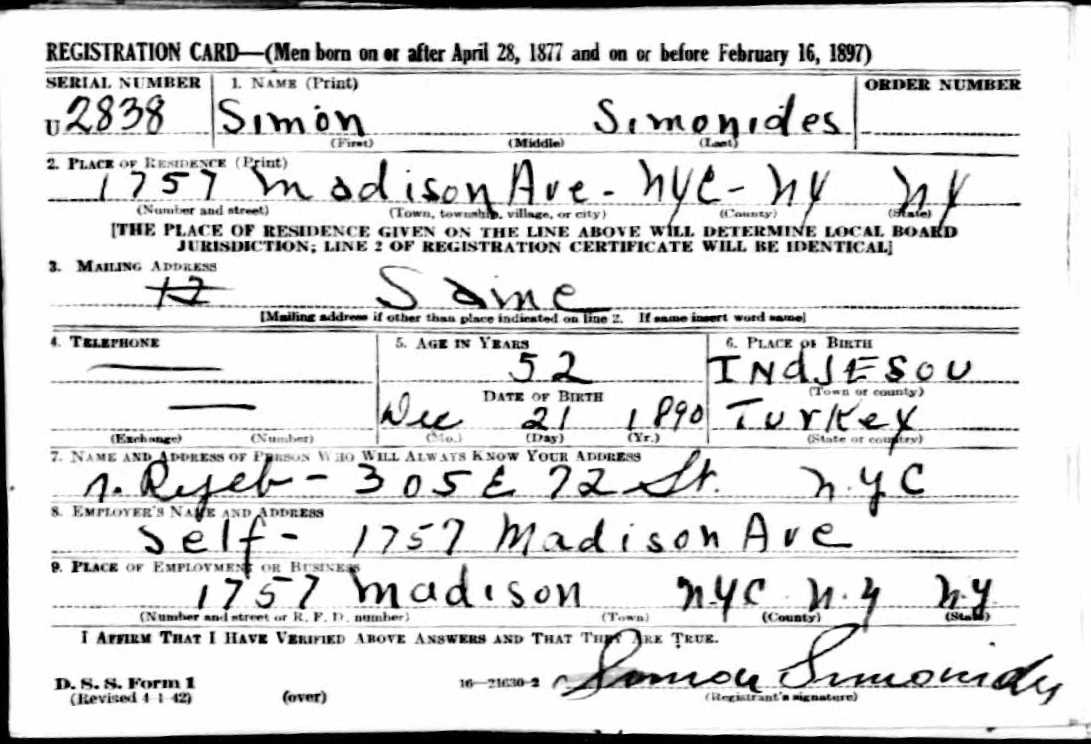 REGISTRATION CARD—(Men born on or after April 28, 1877 and on or before February 16, 1897)
SERIAL NUMBER 1. NAME (Print) ORDER NUMBER
U 2838 Simon Simonides
(First) (Middle) (Last)
2. PLACE OF RESIDENCE (Print)
1757 Madison Ave - NYC - NY NY
(Number and street) (Town, township, village, or city) (County) (State)
[THE PLACE OF RESIDENCE GIVEN ON THE LINE ABOVE WILL DETERMINE LOCAL BOARD
JURISDICTION; LINE 2 OF REGISTRATION CERTIFICATE WILL BE IDENTICAL]
3. MAILING ADDRESS
Same
[Mailing address if other than place indicated on line 2. If same insert word same]
4. TELEPHONE 5. AGE IN YEARS 6. PLACE OF BIRTH
52 INdJESOU
DATE OF BIRTH (Town or county)
Dec 21 1890 Turkey
(Exchange) (Number) (Mo.) (Day) (Yr.) (State or country)
7. NAME AND ADDRESS OF PERSON WHO WILL ALWAYS KNOW YOUR ADDRESS
305 E 72 St. N.Y C
8. EMPLOYER'S NAME AND ADDRESS
Self - 1757 Madison Ave
9. PLACE OF EMPLOYMENT OR BUSINESS
1757 Madison NYC N.Y N.Y
(Number and street or R. F. D. number) (Town) (County) (State)
I AFFIRM THAT I HAVE VERIFIED ABOVE ANSWERS AND THAT THEY ARE TRUE.
D. S. S. Form 1 16—21630-2 Simon Simonides
(Revised 4-1-42) (over) (Registrant's signature)